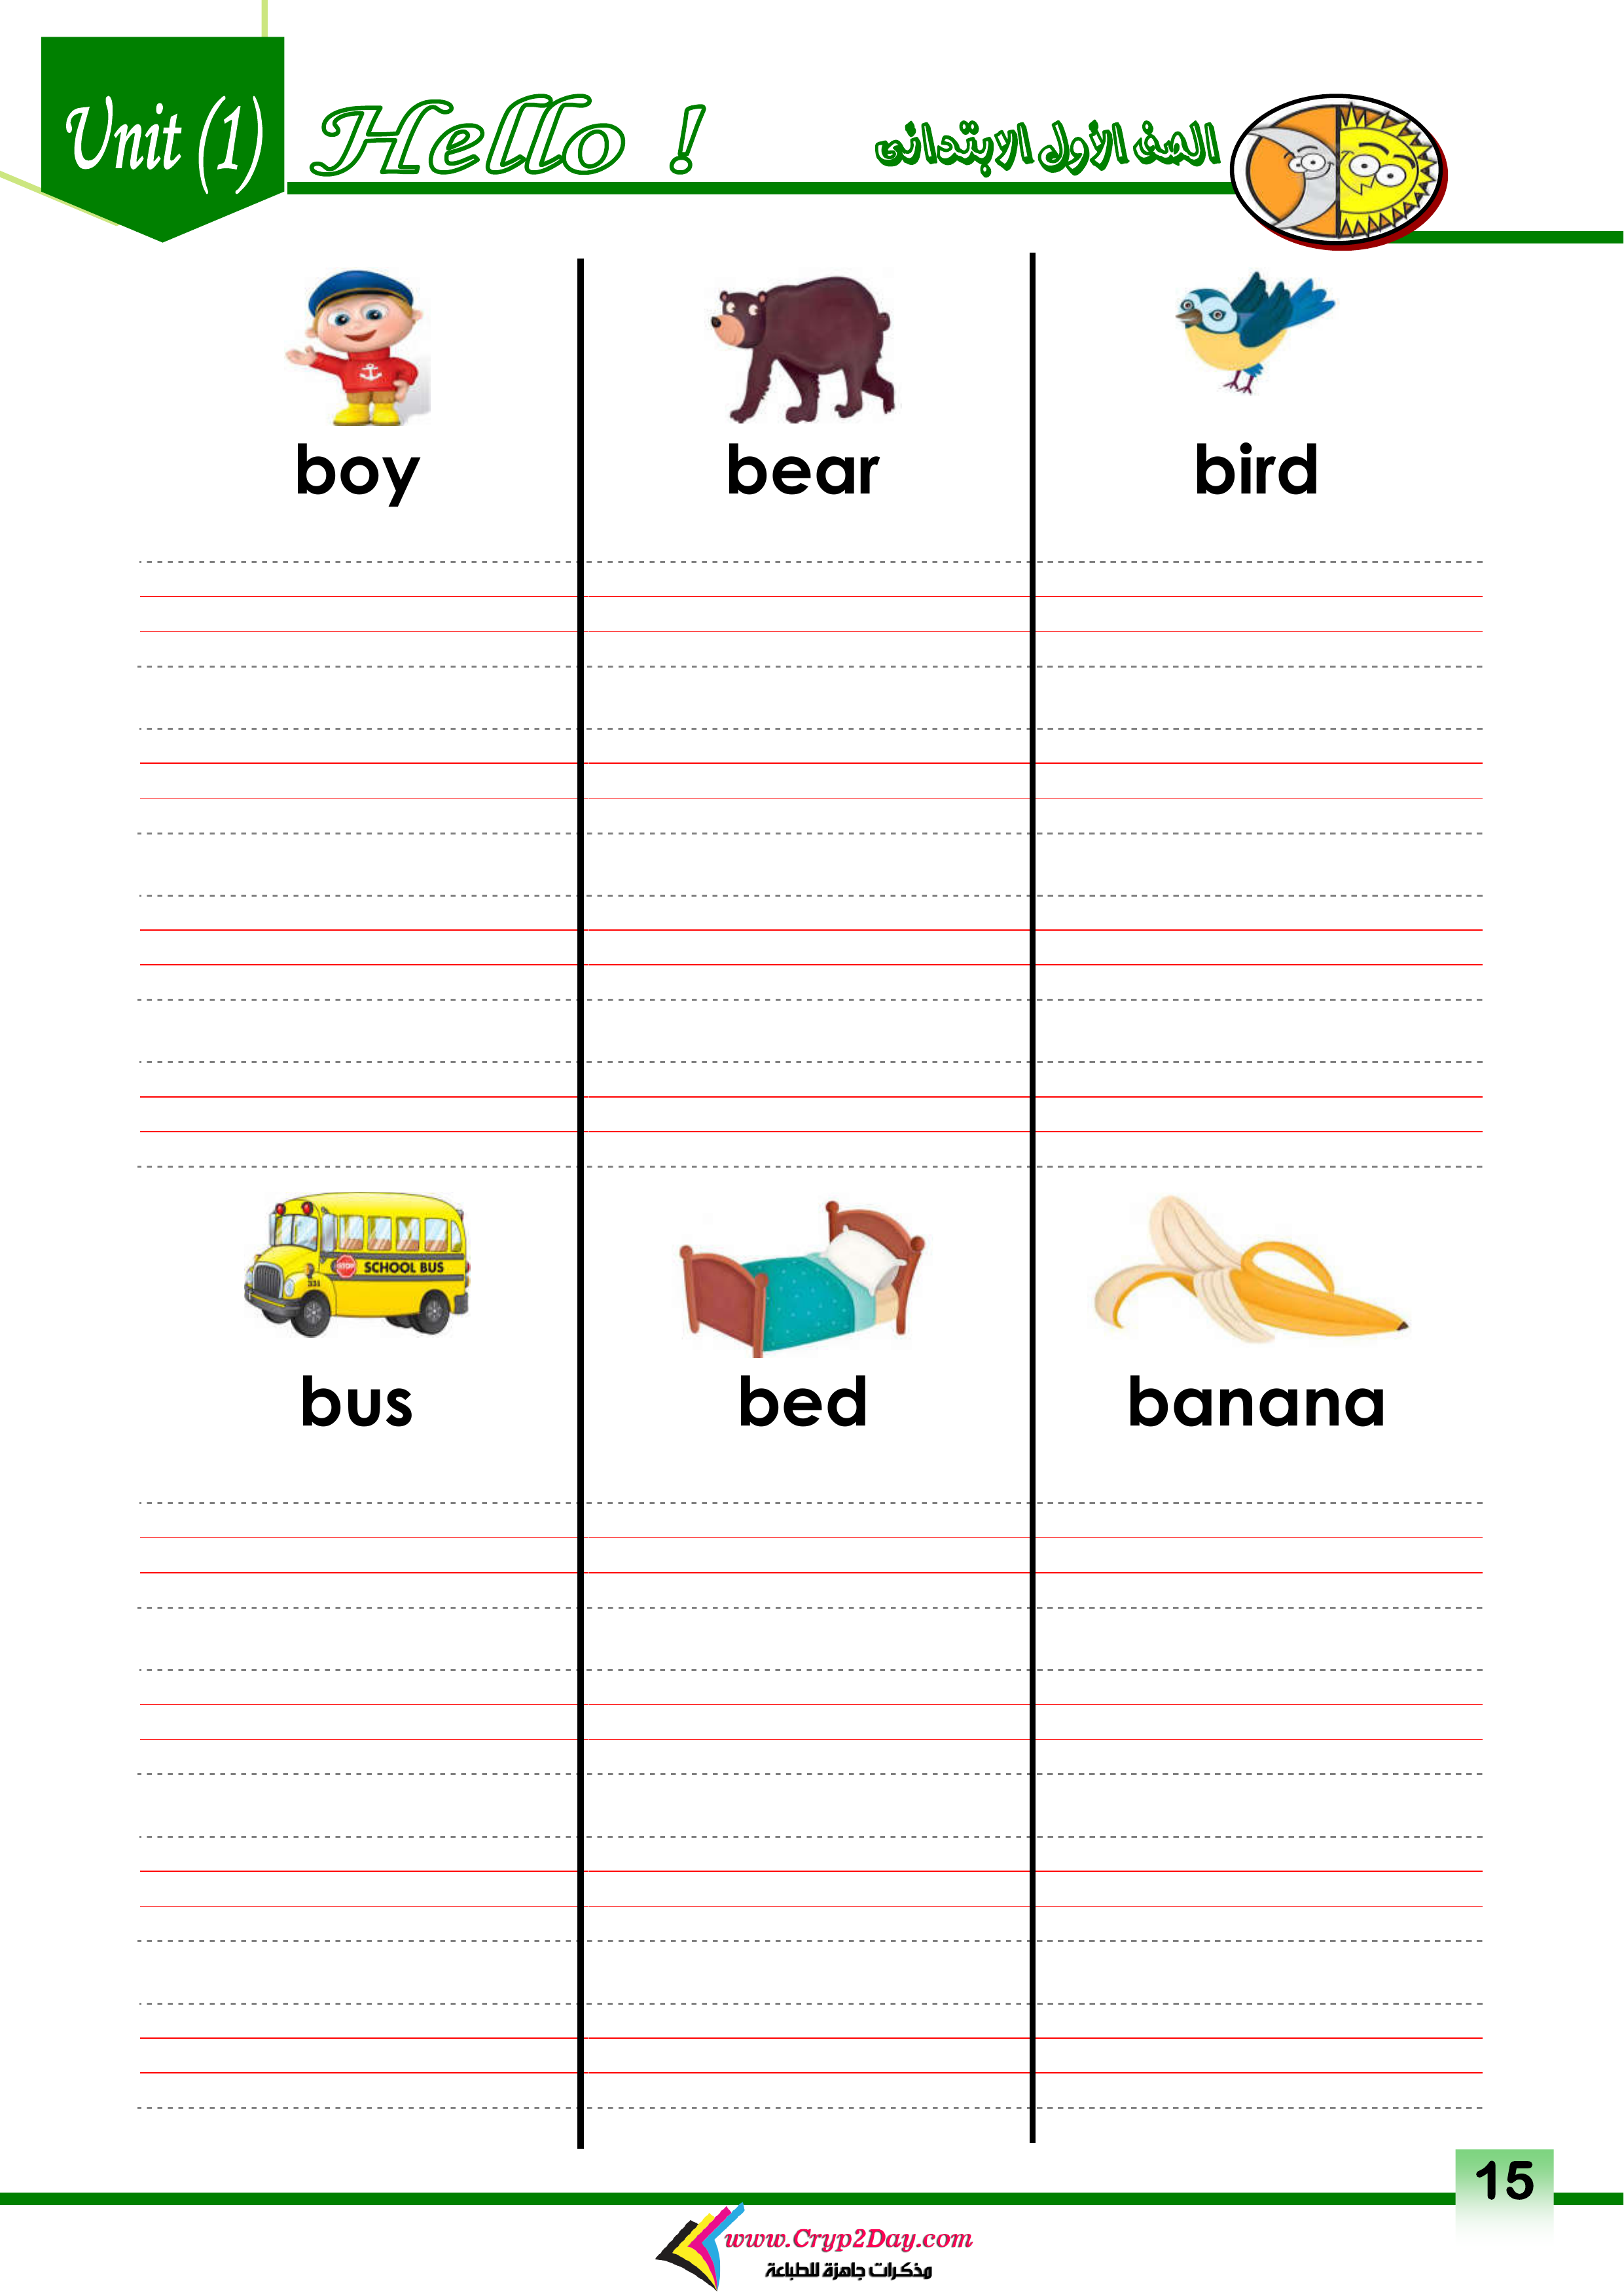 Unit (1) Hello ! الصف الأول الابتدائى
boy bear bird
STOP SCHOOL BUS
331
bus bed banana
15
www.Cryp2Day.com
مذكرات جاهزة للطباعة